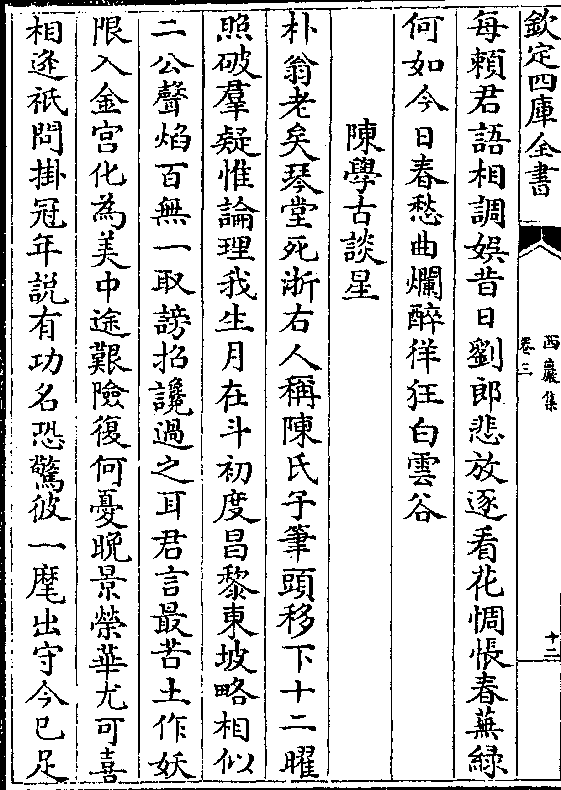 欽定四庫全書
西巖集
卷三
十二
每賴君語相調娛昔日劉郎悲放逐看花惆悵春蕪緑
何如今日春愁曲爛醉徉狂白雲谷
陳學古談星
朴翁老矣琴堂死浙右人稱陳氏子筆頭移下十二曜
照破羣疑惟論理我生月在斗初度昌黎東坡略相似
二公聲焰百無一取謗招讒過之耳君言最苦土作妖
限入金宫化為美中途艱險復何憂晚景榮華尤可喜
相逢祇問掛冠年説有功名恐驚彼一麾出守今已足